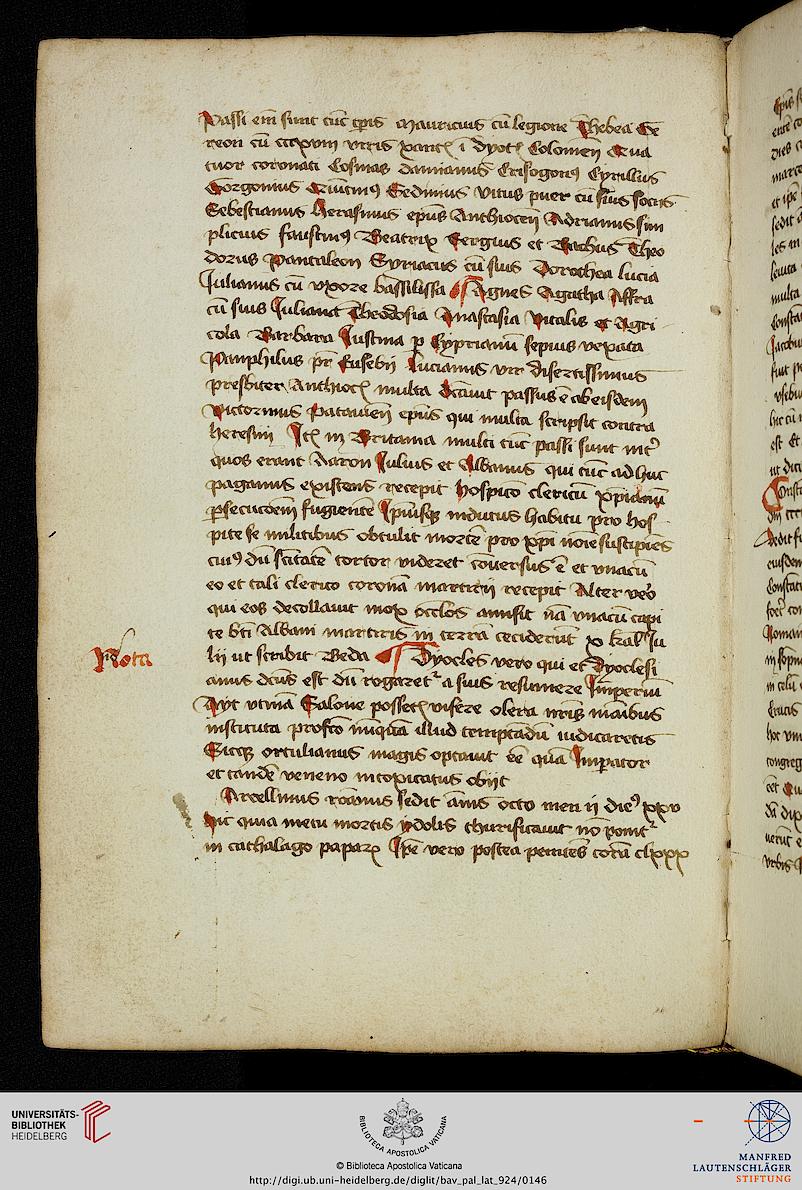 Passi em sunt tūc tp̄is Mauricius cū legione Thebea Ge
reon cū cccxviii viris Colonien Qua
tuor coronati Cosmas damianus Crisogonꝰ Cyrillus
Gorgonius Gedinius Vitus puer cū suis sociis
Sebestianus Herasmus epūs Anthiocen Adrianus sim
plicius faustinꝰ Beatrix Sergius et Bachus Theo
dorus Pantaleon Cyriacus cū suis Dorothea lucia
Julianus cū vxore bassilissa Agnes Agatha Affra
cū suis Juliana Theodosia Anastasia Vitalis et Agri
cola Barbara Justina ꝑ Cyprianū sepius vexata
Pamphilus pr̄ Eusebii Lucianus vir disertissimus
presbiter Anthioc multa passus ē ab eisdem
Victorinus Patauien epūs qui multa scripsit contra
heresim Itē in Britania multi tūc passi sunt int̄
quos erant Aaron Julius et Albanus qui tūc ad huc
paganus existens recepit hospicio clericū xp̄ianū
ꝑsecucōem fugientē Ipiusqꝫ indutus habitu pro hos
pite se militibus obtulit mortē pro xp̄i nōie suscipiēs
cuiꝰ dū sc̄itatē tortor videret cōuersus ē et vnacū
eo et tali clerico coronā martirii recepit Alter vero
qui eos decollauit mox occl̄os amisit nā vnacū capi
te bt̄i Albani martiris in terrā ceciderūt x kal Ju
lii ut scribit Beda Dyocles vero qui et Dyoclesi
Nota
anus dc̄us est dū rogaret a suis resumere Imperiū
Ayt vtinā Salone possetis visere olera nr̄is māibus
instituta profc̄o nūquā illud temptādū iudicaretis
Sicqꝫ ortulianus magis optauit ēē quā Imꝑator
et tandē veneno intoxicatus obiit
Arcellinus romanus sedit annis octo men ii dieꝰ xxv
hic quia metu mortis ydolis thurificauit nō ponit
in cathalago papaꝝ Ipē vero postea peniēs corā clxxx
UNIVERSITÄTS-
BIBLIOTHEK
HEIDELBERG
BIBLIOTECA APOSTOLICA VATICANA
© Biblioteca Apostolica Vaticana
http://digi.ub.uni-heidelberg.de/diglit/bav_pal_lat_924/0146
MANFRED
LAUTENSCHLÄGER
STIFTUNG